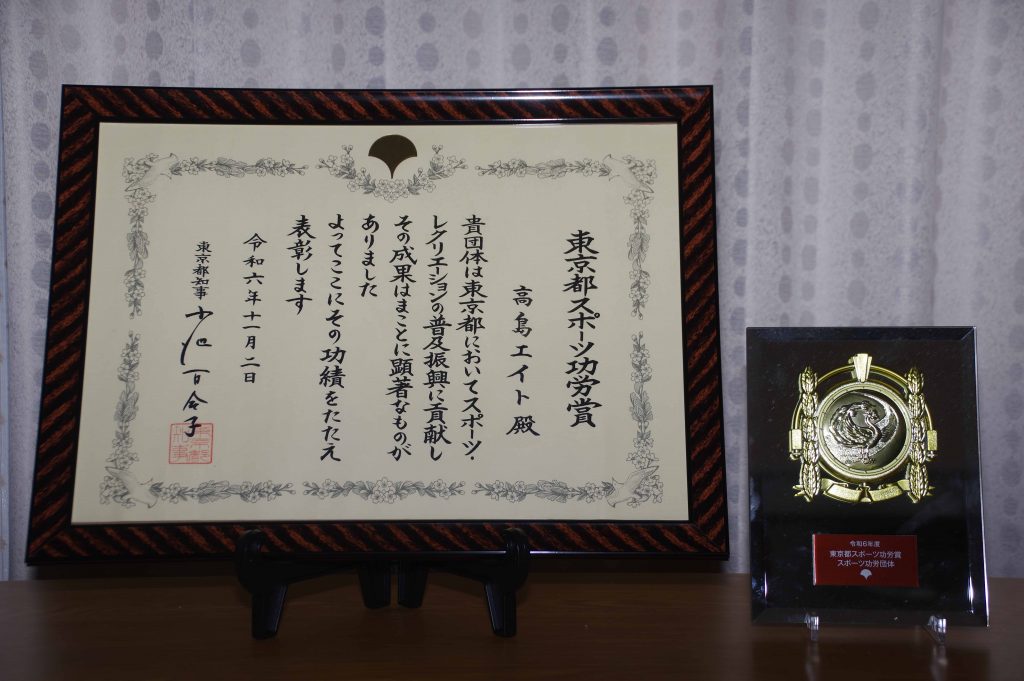 東京都スポーツ功労賞
高島エイト殿
貴団体は東京都においてスポーツ・
レクリエーションの普及振興に貢献し
その成果はまことに顕著なものが
ありました
よってここにその功績をたたえ
表彰します
令和六年十一月二日
東京都知事 小池百合子
東京都知事
令和6年度
東京都スポーツ功労賞
スポーツ功労団体